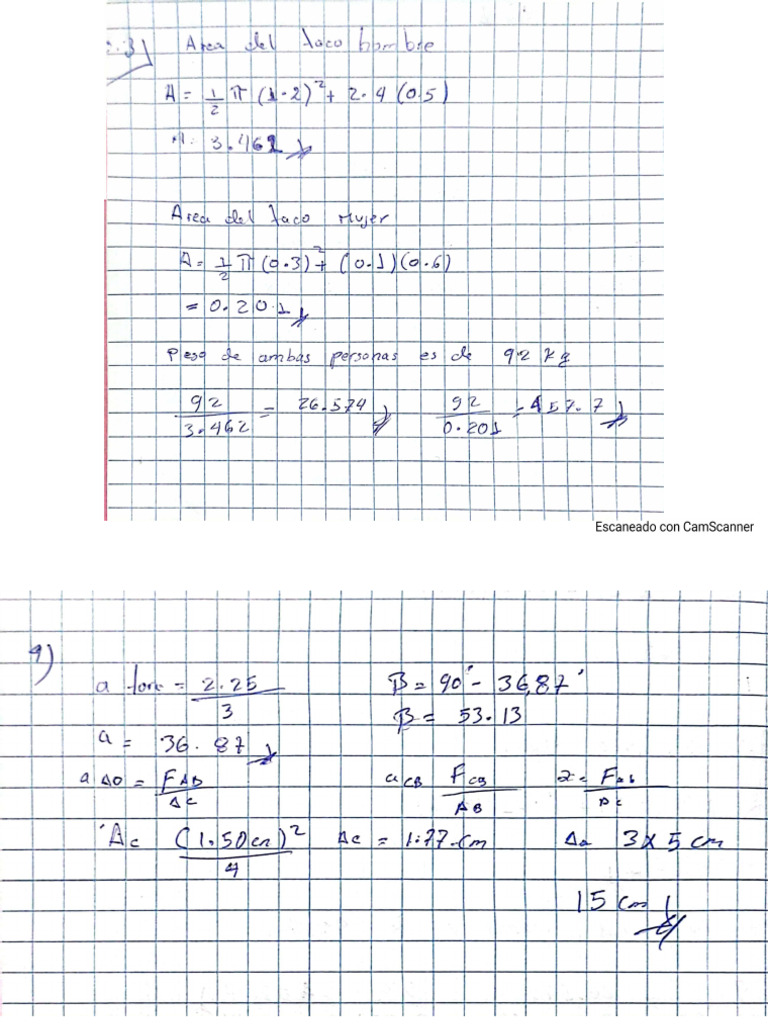 3)
Area del taco hombre
A = 1/2 π (1.2)² + 2.4 (0.5)
A: 3.462
Area del taco Mujer
A = 1/2 π (0.3)² + (0.1)(0.6)
= 0.201
Peso de ambas personas es de 92 kg
92/3.462 = 26.574 92/0.201 = 457.7
Escaneado con CamScanner
4)
a = 2.25/3 β = 90° - 36,87°
a = 36.87 β = 53.13
= FAB/AC aCB FCB/AB
Ac (1.50cm)²/4 Ac = 1.77 cm 3 x 5 cm
15 cm